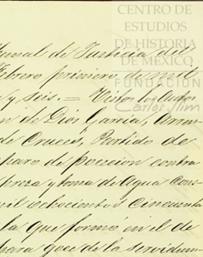 CENTRO DE
ESTUDIOS
DE HISTORIA
DE MÉXICO
FUNDACIÓN
Carlos Slim
bunal de Justicia del
Febrero primero de mil
y seis. = Vistos los autos
n de Dios Garcia,
de Cruces, Partido de
paro de posesion contra
presa y toma de Agua
mil ochocientos cincuenta
la que formó en el de
para goce de la servidum